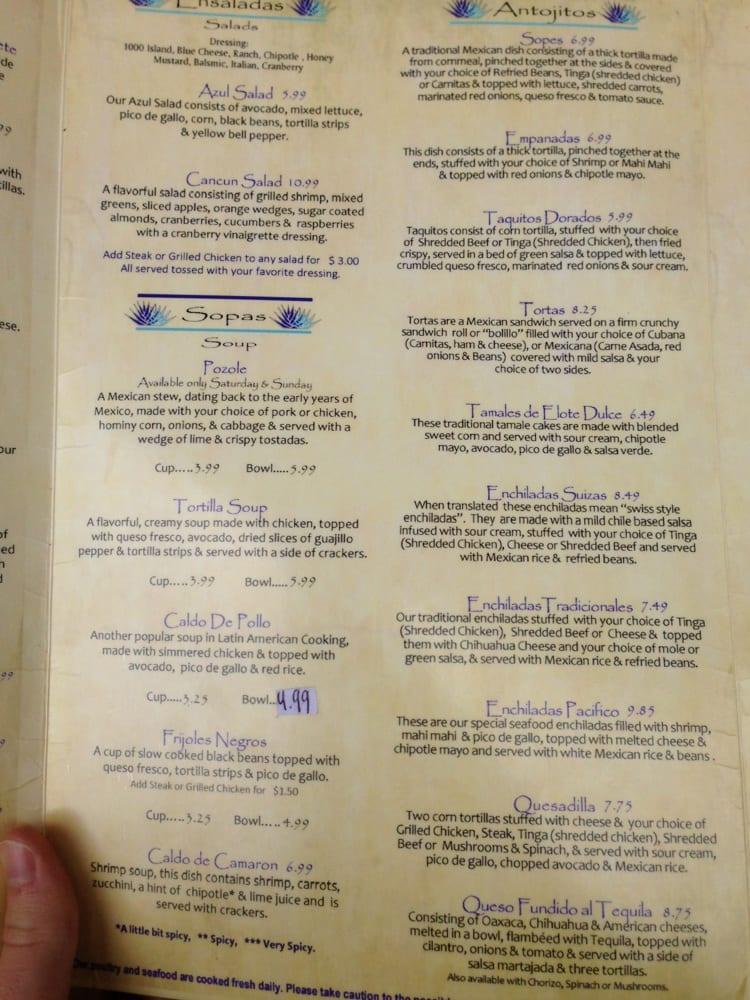 Ensaladas
Salads
Dressing:
1000 Island, Blue Cheese, Ranch, Chipotle , Honey
Mustard, Balsmic, Italian, Cranberry
Azul Salad 5.99
Our Azul Salad consists of avocado, mixed lettuce,
pico de gallo, corn, black beans, tortilla strips
& yellow bell pepper.
Cancun Salad 10.99
A flavorful salad consisting of grilled shrimp, mixed
greens, sliced apples, orange wedges, sugar coated
almonds, cranberries, cucumbers & raspberries
with a cranberry vinaigrette dressing.
Add Steak or Grilled Chicken to any salad for $ 3.00
All served tossed with your favorite dressing.
Sopas
Soup
Pozole
Available only Saturday & Sunday
A Mexican stew, dating back to the early years of
Mexico, made with your choice of pork or chicken,
hominy corn, onions, & cabbage & served with a
wedge of lime & crispy tostadas.
Cup.....3.99 Bowl.....5.99
Tortilla Soup
A flavorful, creamy soup made with chicken, topped
with queso fresco, avocado, dried slices of guajillo
pepper & tortilla strips & served with a side of crackers.
Cup.....3.99 Bowl.....5.99
Caldo De Pollo
Another popular soup in Latin American Cooking,
made with simmered chicken & topped with
avocado, pico de gallo & red rice.
Cup.....3.25 Bowl...4.99
Frijoles Negros
A cup of slow cooked black beans topped with
queso fresco, tortilla strips & pico de gallo.
Add Steak or Grilled Chicken for $1.50
Cup.....3.25 Bowl.....4.99
Caldo de Camaron 6.99
Shrimp soup, this dish contains shrimp, carrots,
zucchini, a hint of chipotle* & lime juice and is
served with crackers.
*A little bit spicy, ** Spicy, *** Very Spicy.
Our poultry and seafood are cooked fresh daily. Please take caution to the
Antojitos
Sopes 6.99
A traditional Mexican dish consisting of a thick tortilla made
from cornmeal, pinched together at the sides & covered
with your choice of Refried Beans, Tinga (shredded chicken)
or Carnitas & topped with lettuce, shredded carrots,
marinated red onions, queso fresco & tomato sauce.
Empanadas 6.99
This dish consists of a thick tortilla, pinched together at the
ends, stuffed with your choice of Shrimp or Mahi Mahi
& topped with red onions & chipotle mayo.
Taquitos Dorados 5.99
Taquitos consist of corn tortilla, stuffed with your choice
of Shredded Beef or Tinga (Shredded Chicken), then fried
crispy, served in a bed of green salsa & topped with lettuce,
crumbled queso fresco, marinated red onions & sour cream.
Tortas 8.25
Tortas are a Mexican sandwich served on a firm crunchy
sandwich roll or "bolillo" filled with your choice of Cubana
(Carnitas, ham & cheese), or Mexicana (Carne Asada, red
onions & Beans) covered with mild salsa & your
choice of two sides.
Tamales de Elote Dulce 6.49
These traditional tamale cakes are made with blended
sweet corn and served with sour cream, chipotle
mayo, avocado, pico de gallo & salsa verde.
Enchiladas Suizas 8.49
When translated these enchiladas mean "swiss style
enchiladas". They are made with a mild chile based salsa
infused with sour cream, stuffed with your choice of Tinga
(Shredded Chicken), Cheese or Shredded Beef and served
with Mexican rice & refried beans.
Enchiladas Tradicionales 7.49
Our traditional enchiladas stuffed with your choice of Tinga
(Shredded Chicken), Shredded Beef or Cheese & topped
them with Chihuahua Cheese and your choice of mole or
green salsa, & served with Mexican rice & refried beans.
Enchiladas Pacifico 9.85
These are our special seafood enchiladas filled with shrimp,
mahi mahi & pico de gallo, topped with melted cheese &
chipotle mayo and served with white Mexican rice & beans .
Quesadilla 7.75
Two corn tortillas stuffed with cheese & your choice of
Grilled Chicken, Steak, Tinga (shredded chicken), Shredded
Beef or Mushrooms & Spinach, & served with sour cream,
pico de gallo, chopped avocado & Mexican rice.
Queso Fundido al Tequila 8.75
Consisting of Oaxaca, Chihuahua & American cheeses,
melted in a bowl, flambéed with Tequila, topped with
cilantro, onions & tomato & served with a side of
salsa martajada & three tortillas.
Also available with Chorizo, Spinach or Mushrooms.